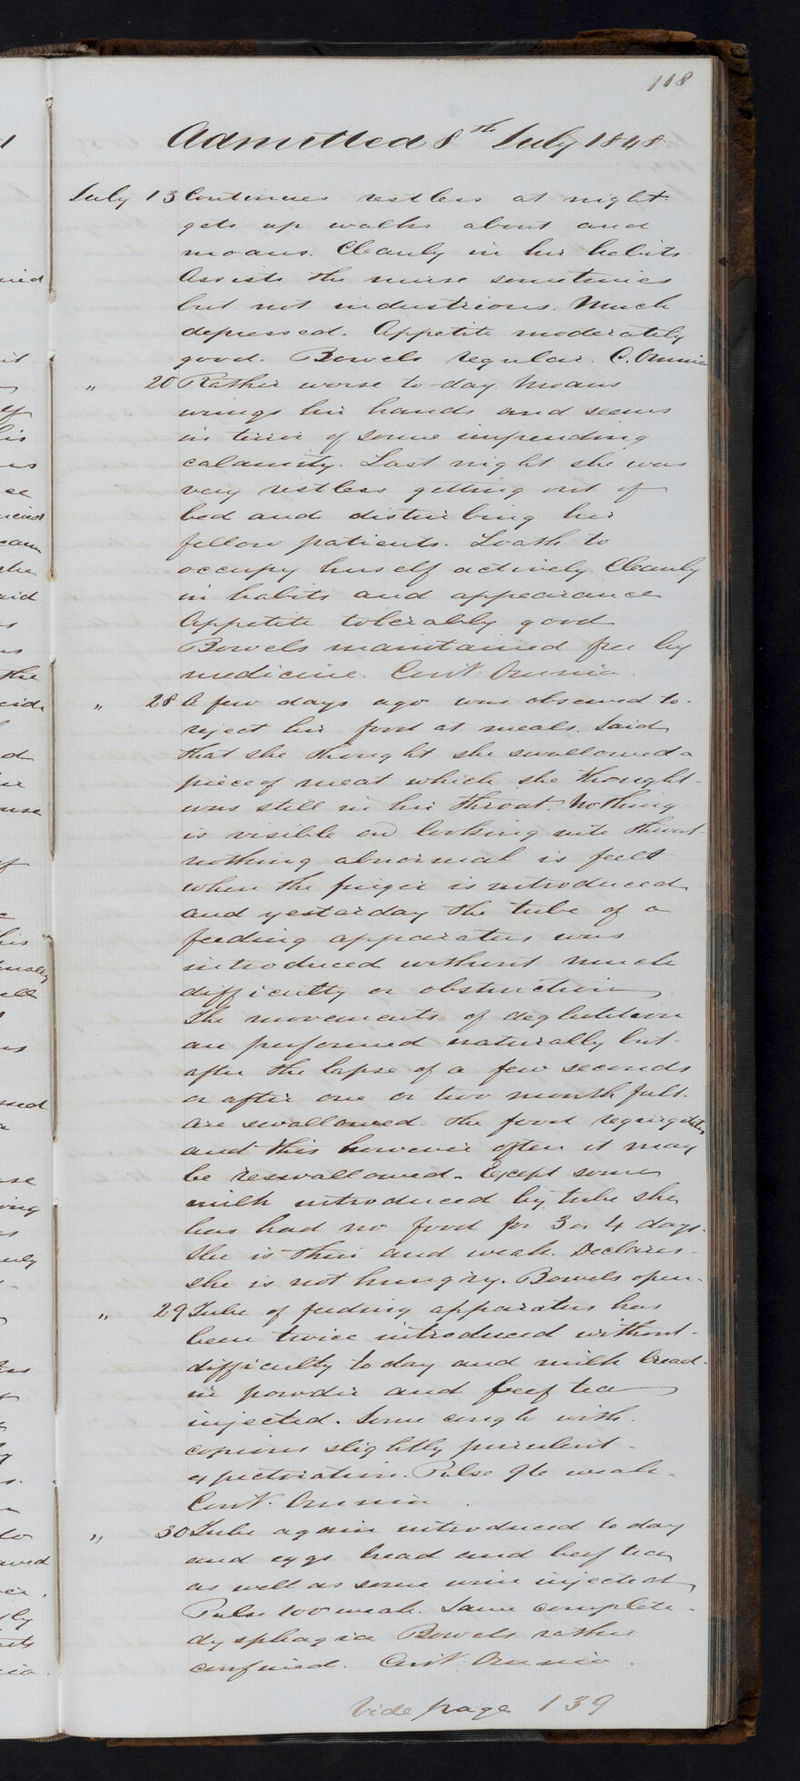 118
Admitted 8th July 1848
July 13 Continues restless at night
gets up walks about and
moans. Cleanly in her habits.
Assists the nurse sometimes
but not industrious. Much
depressed. Appetite moderately
good. Bowels regular. C. Omnia
" 20 Rather worse to-day. Moans
wrings her hands and seems
in terror of some impending
calamity. Last night she was
very restless getting out of
bed and disturbing her
fellow patients. Loath to
occupy herself actively. Cleanly
in habits and appearance
Appetite tolerably good
Bowels maintained free by
medicine. Cont. Omnia.
" 28 A few days ago was observed to
reject her food at meals. Said
that she thought she swallowed a
piece of meat which she thought
was still in her throat. Nothing
is visible on looking into throat
nothing abnormal is feelt
when the finger is introduced
and yesterday the tube of a
feeding apparatus was
introduced without much
difficulty or obstruction
The movements of deglutition
are performed naturally but
after the lapse of a few seconds
or after one or two mouthfulls
are swallowed the food regurgitates
and this however often it may
be reswallowed. Except some
milk introduced by tube she
has had no food for 3 or 4 days.
She is thin and weak. Declares
she is not hungry. Bowels open.
" 29 Tube of feeding apparatus has
been twice introduced without
difficulty to day and milk bread
in powder and beef tea
injected. Some cough with
copious slightly purulent
expectoration. Pulse 96 weak.
Cont. Omnia.
" 30 Tube again introduced to day
and eggs bread and beef tea
as well as some wine injected
Pulse 100 weak. Same complete
dysphagia Bowels rather
confined. Cont. Omnia.
Vide page 139